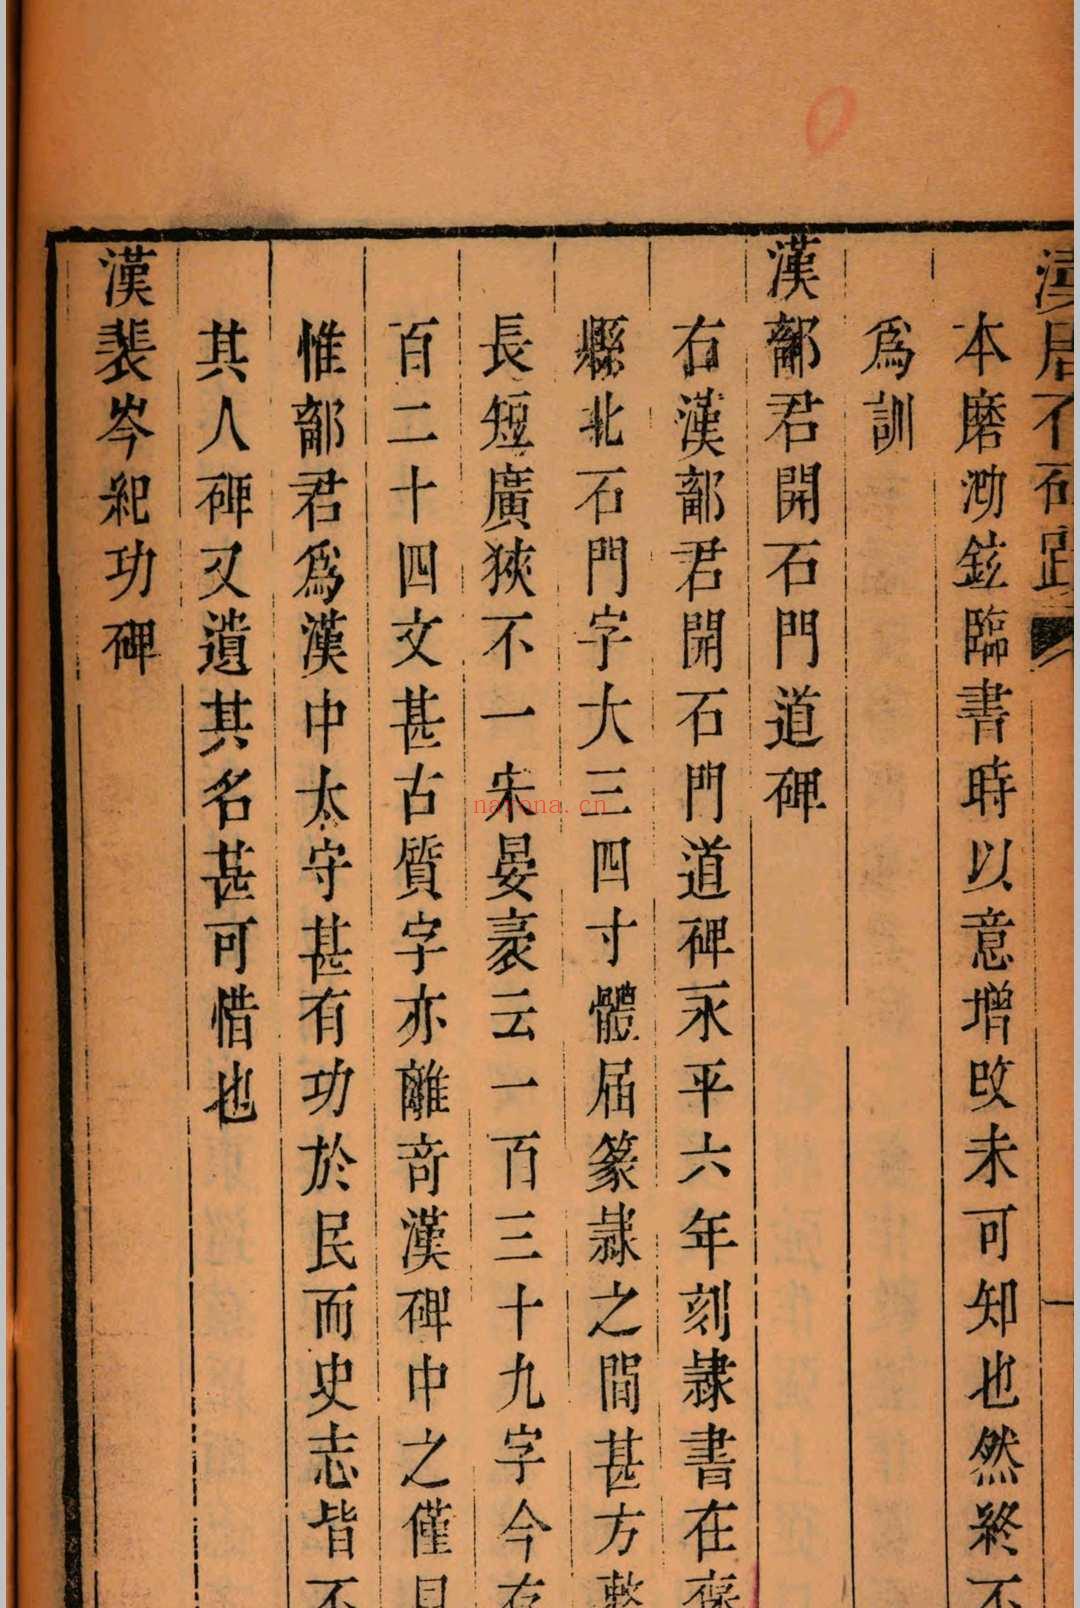 本磨泐鉉臨書時以意增改未可知也然終不
爲訓
漢鄐君開石門道碑
右漢鄐君開石門道碑永平六年刻隷書在褒
縣北石門字大三四寸體届篆隷之間甚方整
長短廣狹不一宋晏袤云一百三十九字今存
百二十四文甚古質字亦離奇漢碑中之僅見
惟鄐君爲漢中太守甚有功於民而史志皆不
其人碑又遺其名甚可惜也
漢裴岑紀功碑
nayona.cn